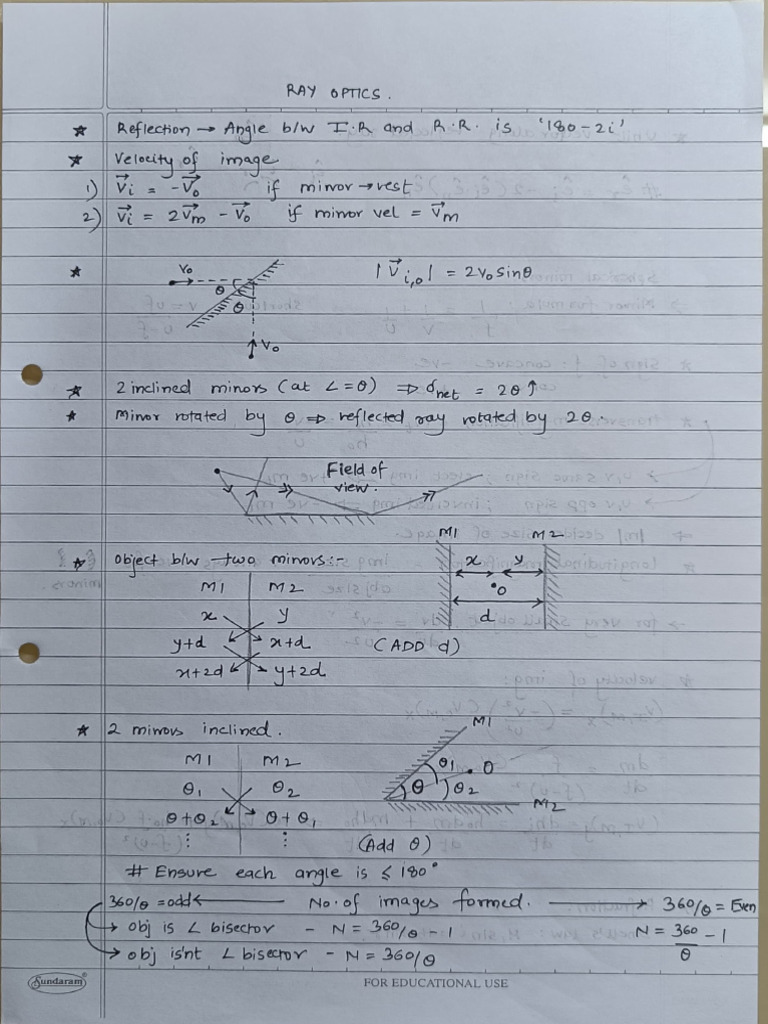 RAY OPTICS.
★ Reflection → Angle b/w I.R and R.R. is '180-2i'
★ Velocity of image
1) V⃗i = -V⃗o if mirror → rest
2) V⃗i = 2V⃗m - V⃗o if mirror vel = V⃗m
★ Vo θ θ Vo |V⃗i,o| = 2Vo sinθ
★ 2 inclined mirrors (at ∠=θ) ⇒ δnet = 2θ ↑
★ Mirror rotated by θ ⇒ reflected ray rotated by 2θ.
Field of
view.
★ Object b/w two mirrors:-
M1 M2
x y
y+d x+d (ADD d)
x+2d y+2d
M1 M2
x y
O
d
★ 2 mirrors inclined.
M1 M2
θ1 θ2
θ+θ2 θ+θ1
⋮ ⋮ (Add θ)
M1
θ1 O
θ θ2
M2
# Ensure each angle is ≤ 180°
360/θ = odd ← No. of images formed. → 360/θ = Even
→ obj is ∠ bisector - N = 360/θ - 1 N = 360/θ - 1
→ obj is'nt ∠ bisector - N = 360/θ
Sundaram® FOR EDUCATIONAL USE